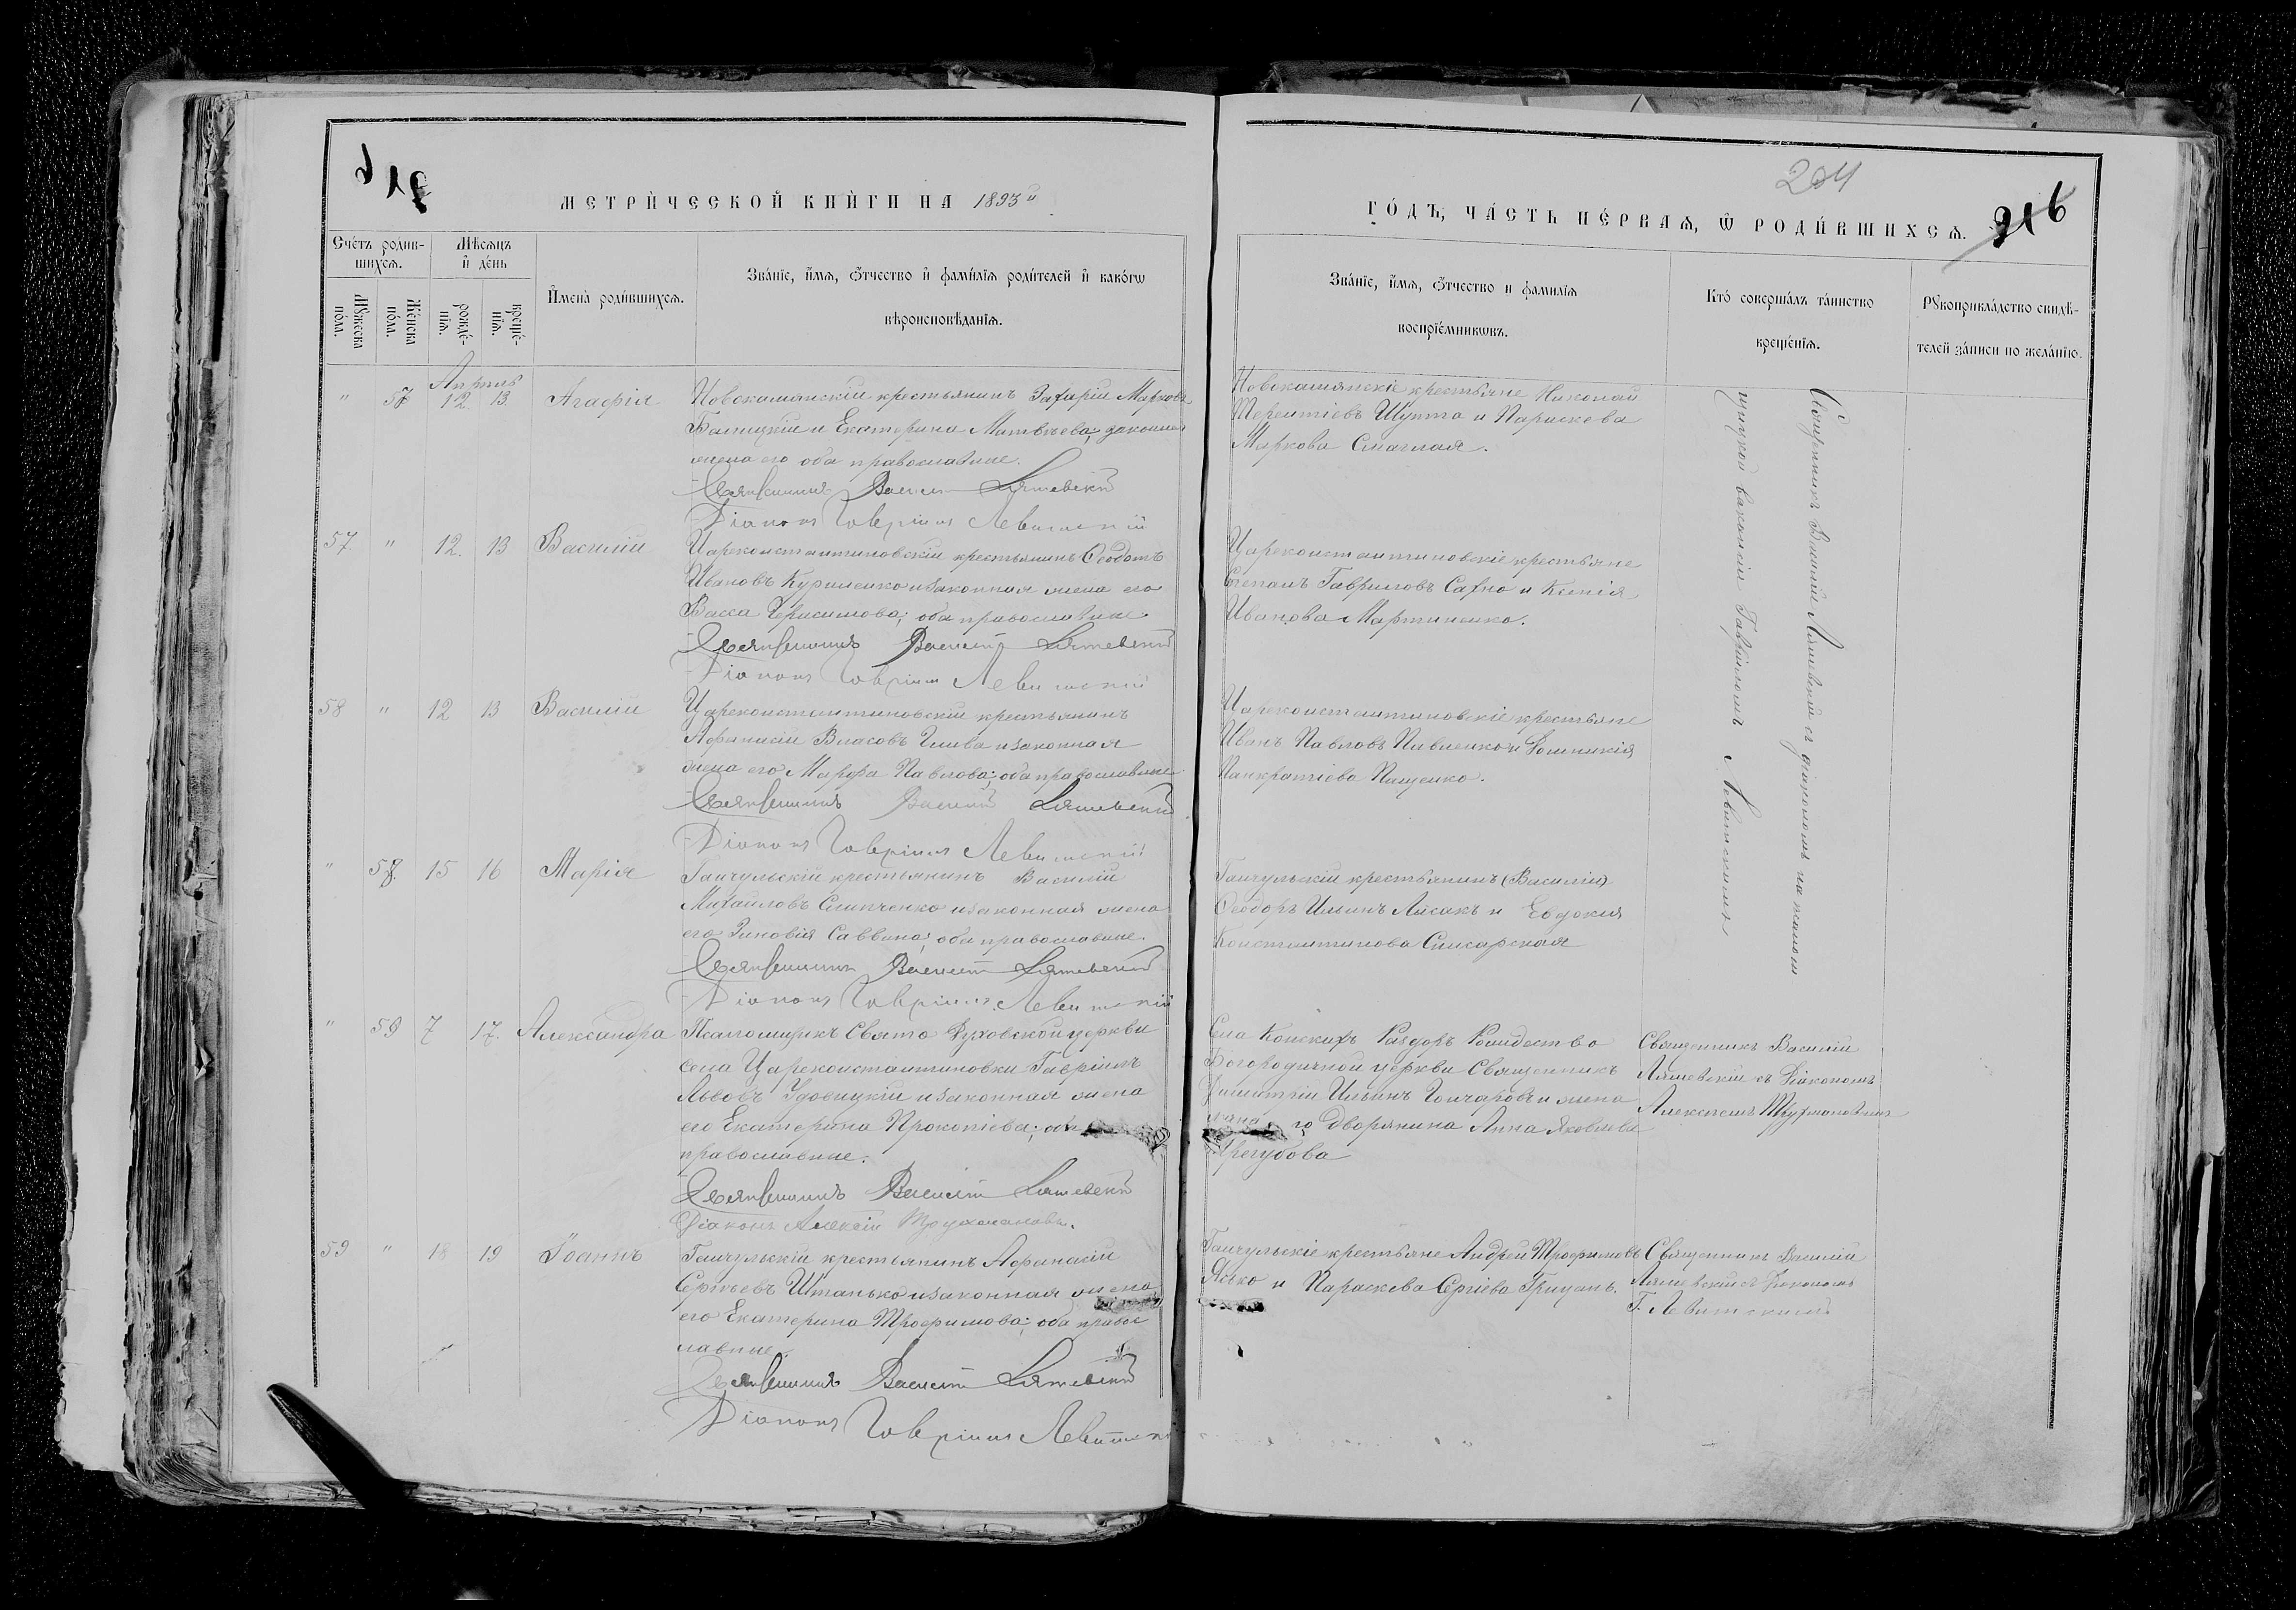 204
216
МЕТРИЧЕСКОЙ КНИГИ НА 1893й
ГОДЪ, ЧАСТЬ ПЕРВАЯ, Ѿ РОДИВШИХСѦ.
Счетъ родив-
шихсѧ.
Мѣсѧцъ
и день
Мꙋжеска
пола.
Женска
пола.
рожде-
нїѧ.
креще-
нїѧ.
Имена родившихсѧ.
Званїе, имѧ, ѻтчество и фамилїѧ родителей и какогѡ
вѣроисповѣданїѧ.
Званїе, имѧ, ѻтчество и фамилїѧ
воспрїемникѡвъ.
Кто совершалъ таинство
крещенїѧ.
Рꙋкоприкладство свидѣ-
телей записи по желанїю.
Апрѣль
" 57 12. 13. Агафія
Новокаменскій крестьянинъ Захарій Марковъ
и Екатерина Матвѣева, законная
жена его оба православные.
Священникъ Василій Ляшевскій
Діаконъ Гавріилъ Левитскій
Новокаменскіе крестьяне Николай
Терентіевъ Шупта и Параскева
Маркова Смачная.
Священникъ Василій Ляшевскій съ діакономъ на псаломщицкой вакансіи Гавріиломъ Левитскимъ
57 " 12. 13 Василій
Цареконстантиновскій крестьянинъ Ѳеодотъ
Ивановъ Куриленко и законная жена его
Васса Герасимова; оба православные
Священникъ Василій Ляшевскій
Діаконъ Гавріилъ Левитскій
Цареконстантиновскіе крестьяне
Степанъ Гавриловъ Сахно и Ксенія
Иванова Мартиненко.
58 " 12 13 Василій
Цареконстантиновскій крестьянинъ
Афанасій Власовъ и законная
жена его Марфа Павлова; оба православные
Священникъ Василій Ляшевскій
Діаконъ Гавріилъ Левитскій
Цареконстантиновскіе крестьяне
Иванъ Павловъ Павленко и Домникія
Панкратіева Пащенко.
" 58. 15 16 Марія
Гайчульскій крестьянинъ Василій
Михайловъ Слипченко и законная жена
его Зиновія Саввина; оба православные.
Священникъ Василій Ляшевскій
Діаконъ Гавріилъ Левитскій
Гайчульскій крестьянинъ (Василій)
Ѳеодоръ Ильинъ Лисакъ и Евдокія
Константинова Слисарская
" 59 7 17. Александра
Псаломщикъ Свято Духовской церкви
села Цареконстантиновки Гавріилъ
Львовъ Удовицкій и законная жена
его Екатерина Прокопіева; оба
православные.
Священникъ Василій Ляшевскій
Діаконъ Алексій Трухмановъ.
Села Конскихъ Раздоръ Рождество
Богородичной церкви Священникъ
Димитрій Ильинъ Гончаровъ и жена
дворянина Анна Яковлева
Трегубова
Священникъ Василій
Ляшевскій съ Діакономъ
Алексѣемъ Трухмановымъ
59 " 18 19 Іоаннъ
Гайчульскій крестьянинъ Афанасій
Сергѣевъ Штанько и законная жена
его Екатерина Трофимова; оба право
славные.
Священникъ Василій Ляшевскій
Діаконъ Гавріилъ Левитскій
Гайчульскіе крестьяне Андрей Трофимовъ
Ясько и Параскева Сергіева Грицанъ.
Священникъ Василій
Ляшевскій съ Діакономъ
Г. Левитскимъ